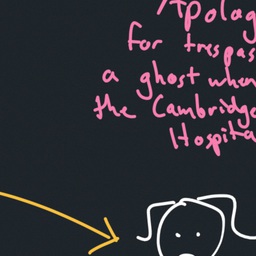 Apolog
for trespas
a ghost when
the Cambridge
Hospita